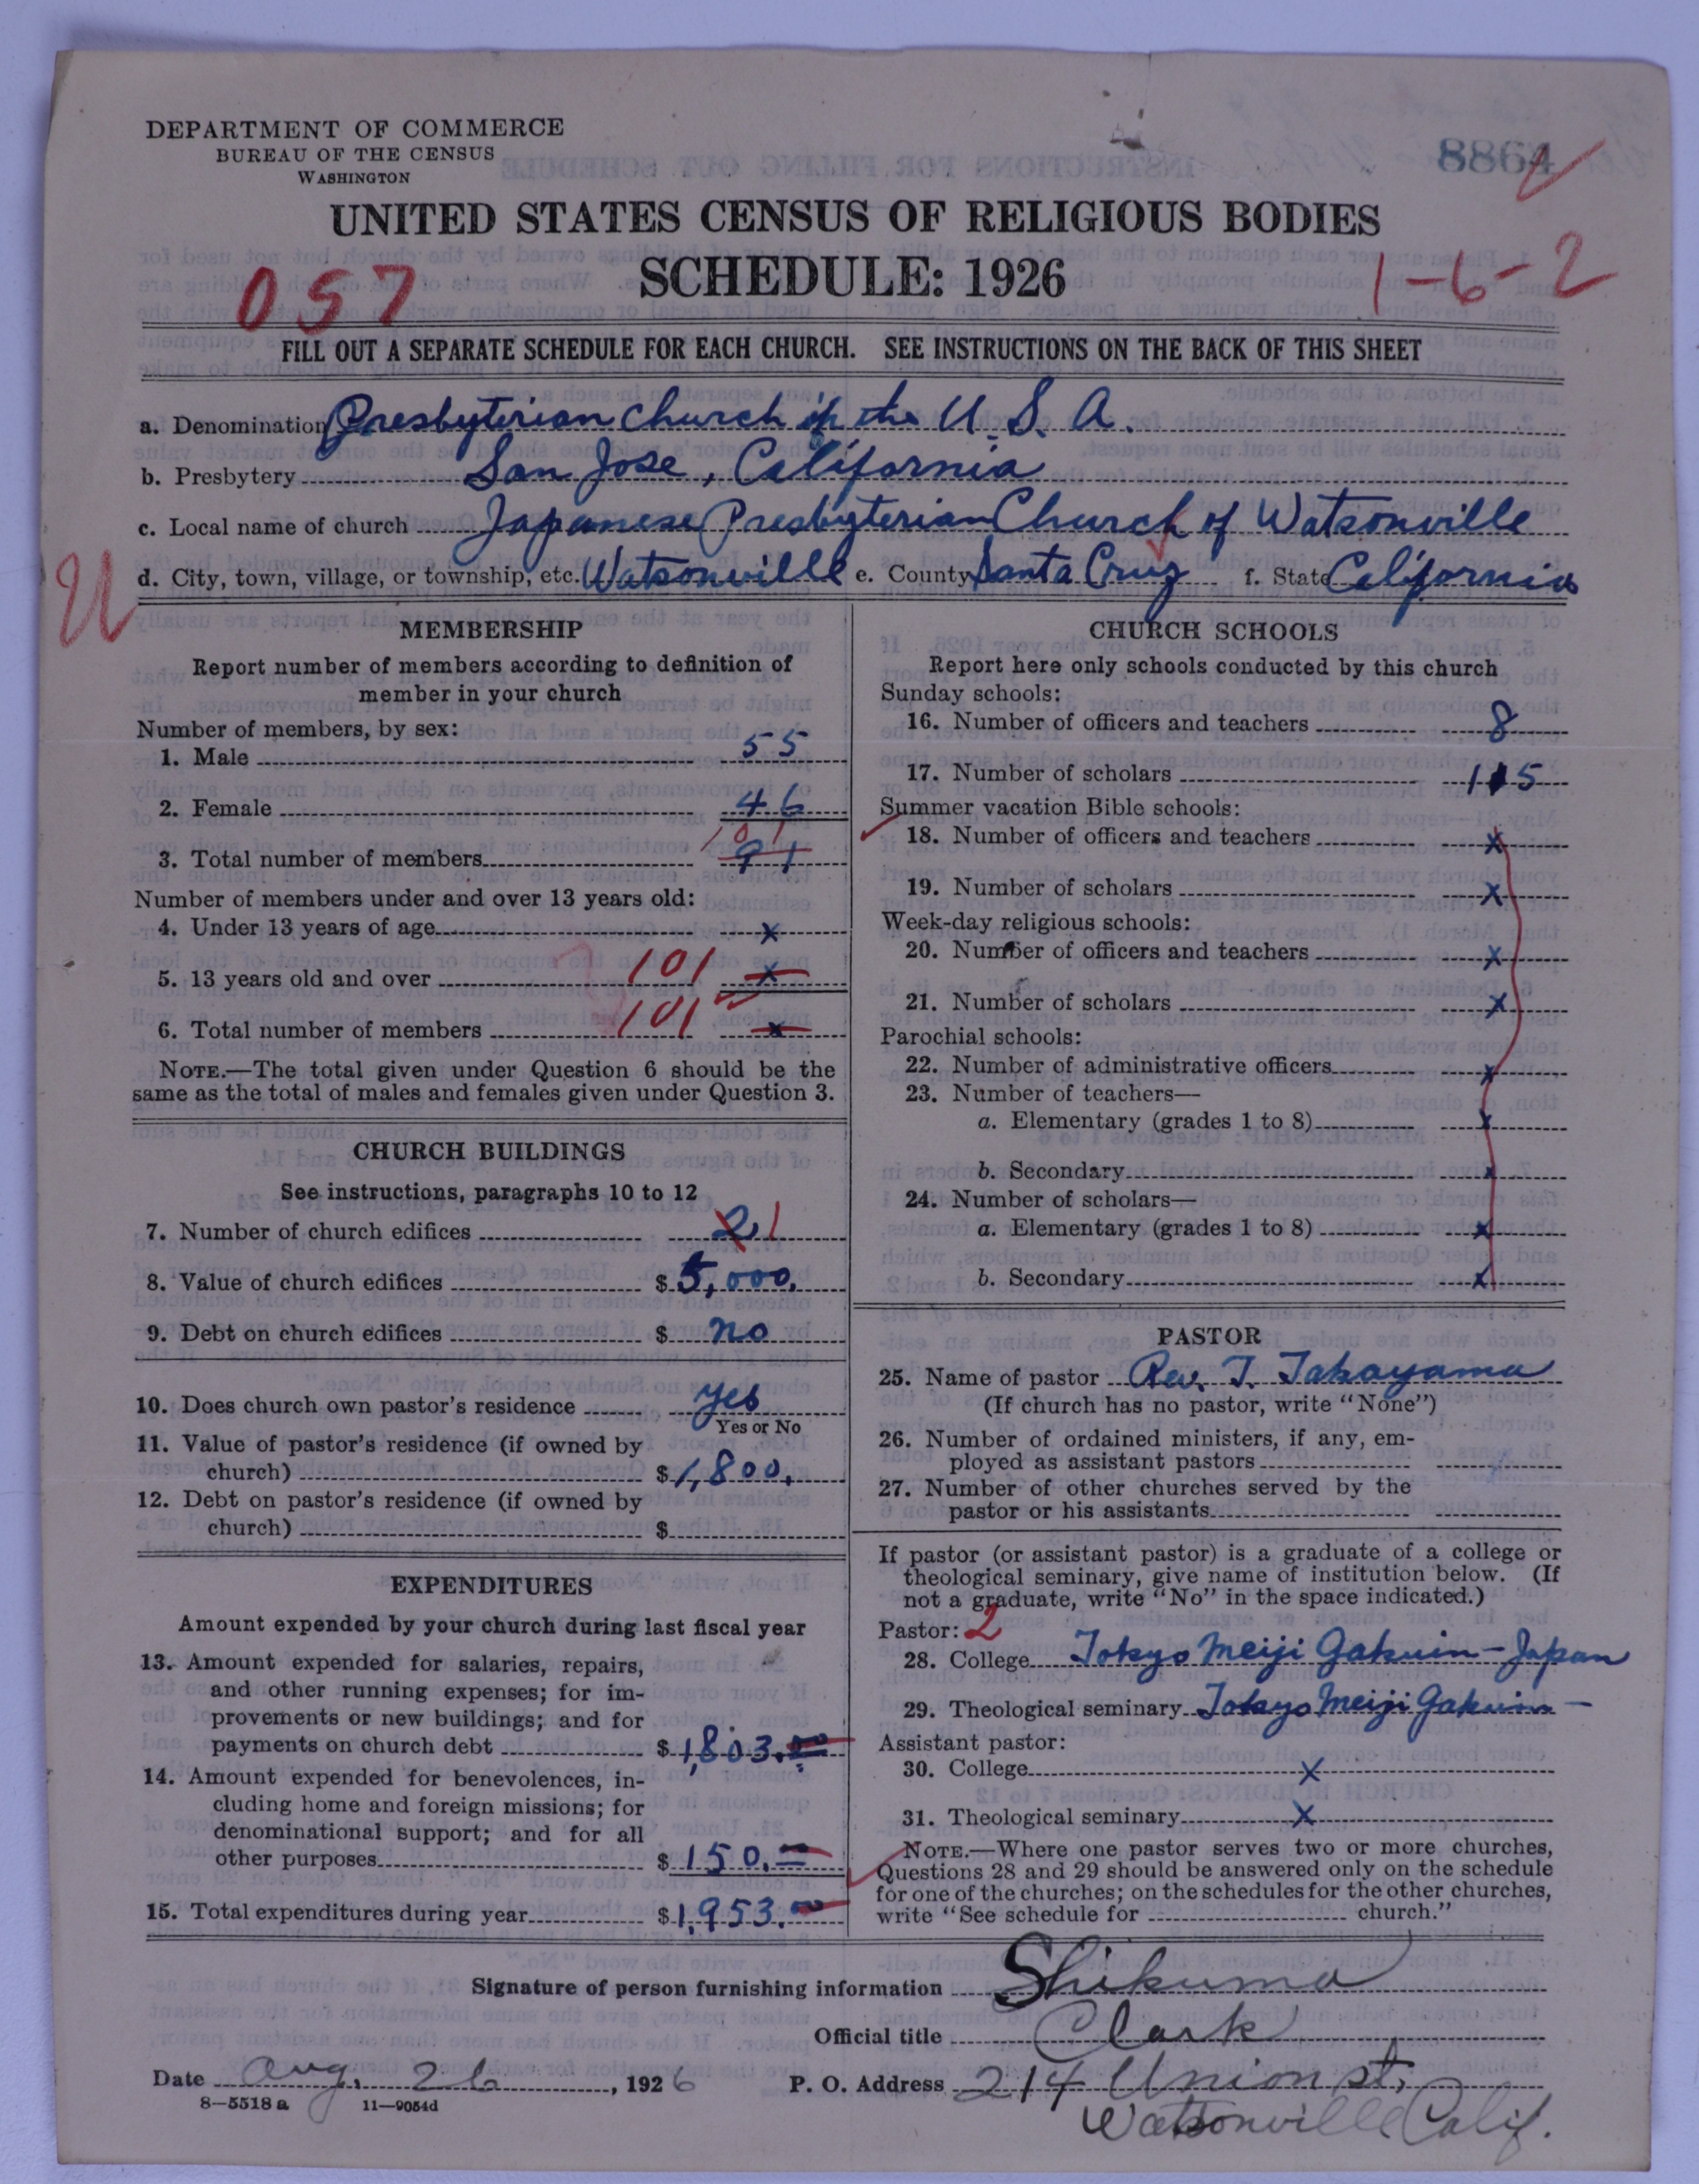 DEPARTMENT OF COMMERCE
BUREAU OF THE CENSUS
WASHINGTON
8864
UNITED STATES CENSUS OF RELIGIOUS BODIES
SCHEDULE: 1926
057
1-6-2
FILL OUT A SEPARATE SCHEDULE FOR EACH CHURCH. SEE INSTRUCTIONS ON THE BACK OF THIS SHEET
a. Denomination Presbyterian Church in the U.S.A.
b. Presbytery San Jose, California
c. Local name of church Japanese Presbyterian Church of Watsonville
d. City, town, village, or township, etc. Watsonville e. County Santa Cruz f. State California
U
MEMBERSHIP
Report number of members according to definition of
member in your church
Number of members, by sex:
1. Male 55
2. Female 46
3. Total number of members 91 101
Number of members under and over 13 years old:
4. Under 13 years of age x
5. 13 years old and over 101 x
6. Total number of members 101 x
NOTE.—The total given under Question 6 should be the
same as the total of males and females given under Question 3.
CHURCH BUILDINGS
See instructions, paragraphs 10 to 12
7. Number of church edifices 2 1
8. Value of church edifices $ 5,000.
9. Debt on church edifices $ no
10. Does church own pastor's residence yes
Yes or No
11. Value of pastor's residence (if owned by
church) $ 1,800.
12. Debt on pastor's residence (if owned by
church) $
EXPENDITURES
Amount expended by your church during last fiscal year
13. Amount expended for salaries, repairs,
and other running expenses; for im-
provements or new buildings; and for
payments on church debt $ 1,803.00
14. Amount expended for benevolences, in-
cluding home and foreign missions; for
denominational support; and for all
other purposes $ 150.
15. Total expenditures during year $ 1,953.00
CHURCH SCHOOLS
Report here only schools conducted by this church
Sunday schools:
16. Number of officers and teachers 8
17. Number of scholars 115
Summer vacation Bible schools:
18. Number of officers and teachers x
19. Number of scholars x
Week-day religious schools:
20. Number of officers and teachers x
21. Number of scholars x
Parochial schools:
22. Number of administrative officers x
23. Number of teachers—
a. Elementary (grades 1 to 8) x
b. Secondary x
24. Number of scholars—
a. Elementary (grades 1 to 8) x
b. Secondary x
PASTOR
25. Name of pastor Rev. T. Takayama
(If church has no pastor, write "None")
26. Number of ordained ministers, if any, em-
ployed as assistant pastors
27. Number of other churches served by the
pastor or his assistants
If pastor (or assistant pastor) is a graduate of a college or
theological seminary, give name of institution below. (If
not a graduate, write "No" in the space indicated.)
Pastor: 2
28. College Tokyo Meiji Gakuin - Japan
29. Theological seminary Tokyo Meiji Gakuin -
Assistant pastor:
30. College x
31. Theological seminary x
NOTE.—Where one pastor serves two or more churches,
Questions 28 and 29 should be answered only on the schedule
for one of the churches; on the schedules for the other churches,
write "See schedule for church."
Signature of person furnishing information Shikuma
Official title Clark
Date Aug. 26, 1926 P. O. Address 214 Union st.
Watsonville Calif.
8-5518 a 11-9054d